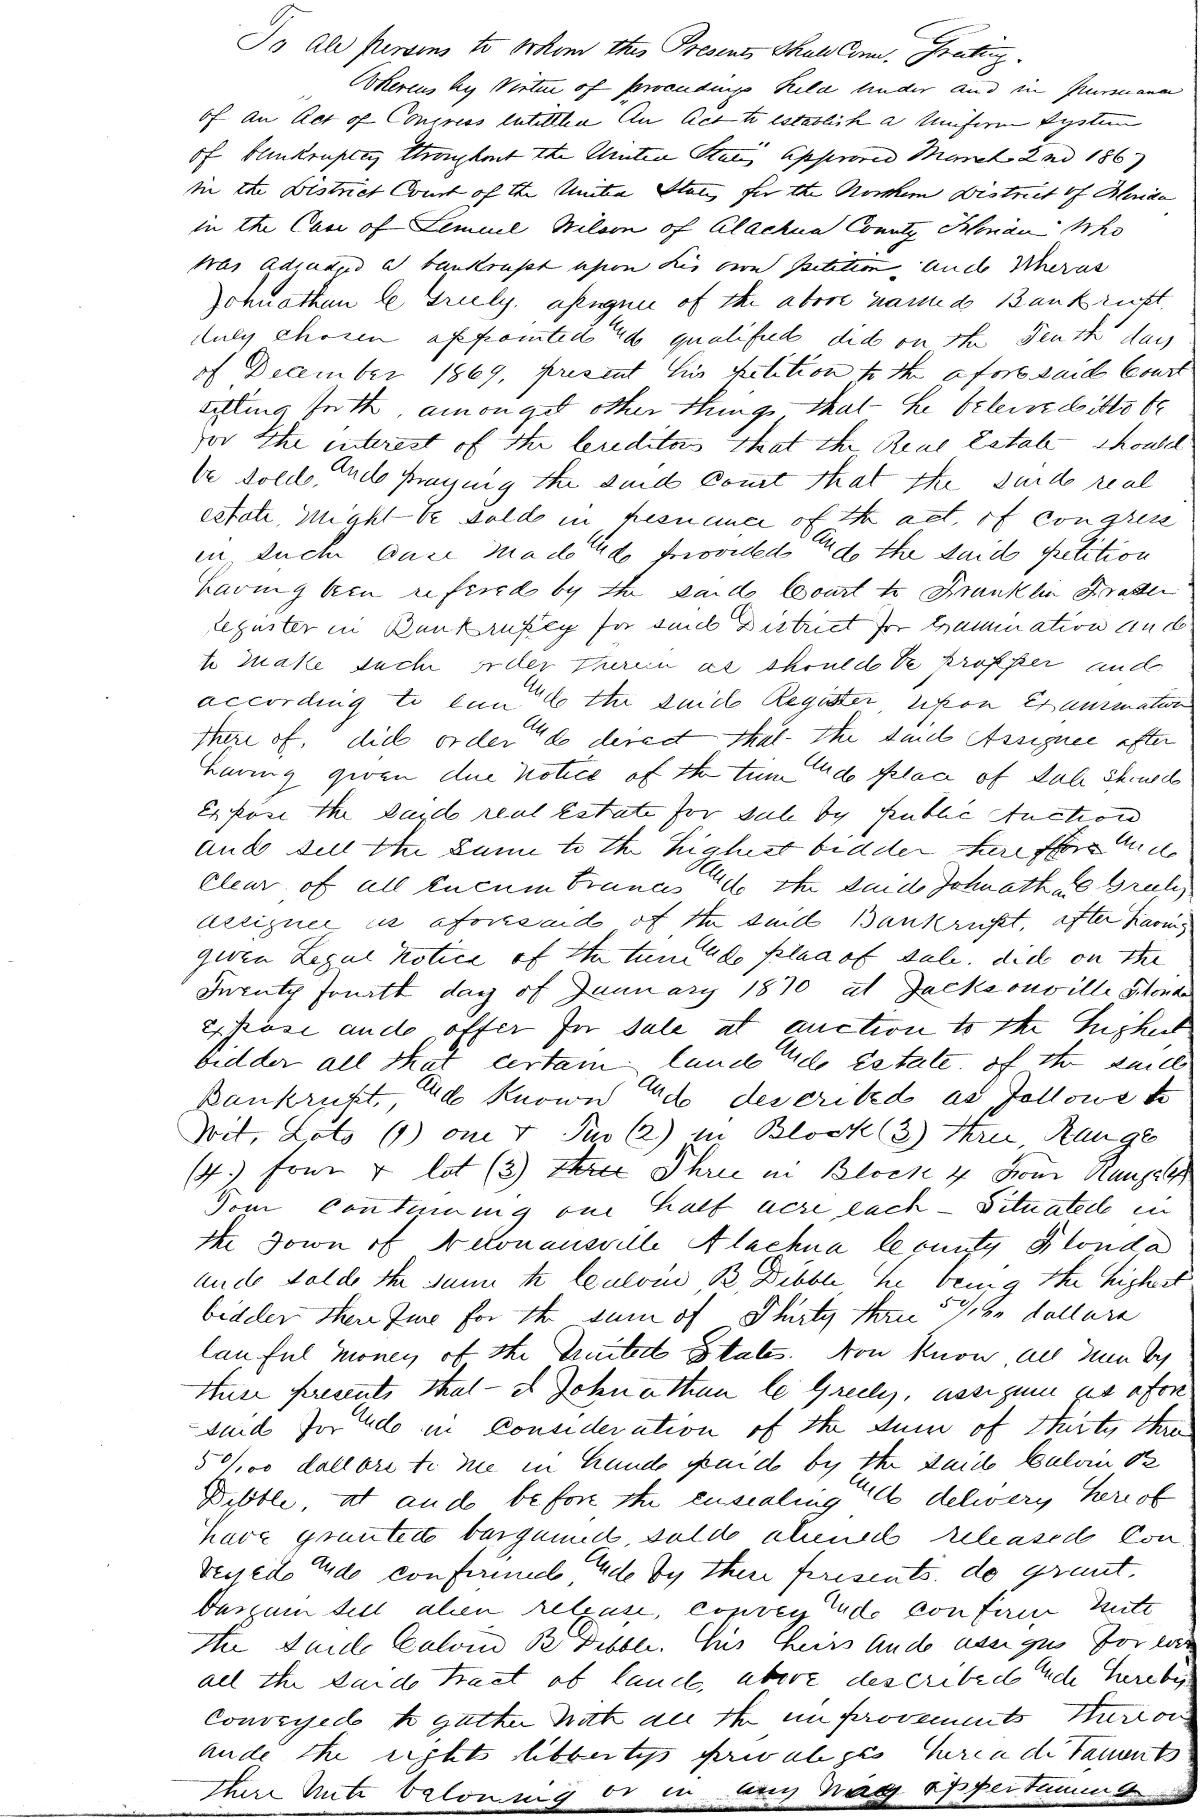 To all persons to whom this Presents Shall Come. Greeting.
Whereus by Virtue of proceedings held under and in pursuance
of an Act of Congress entittled "An Act to establish a Uniform System
of bankruptcy throughout the United States" approved March 2nd 1867
in the District Court of the United States for the Northern District of Florida
in the Case of Lemuel Wilson of Alachua County Florida Who
was adjudged a bankrupt upon his own petition. and Wheras
Johnathan C Greely. assignee of the above named Bankrupt.
duly chosen appointed and qualified did on the Tenth day
of December 1869, present his petition to the aforesaid Court
setting forth, amongst other things that he beleived it to be
for the interest of the Creditors that the Real Estate should
be sold, and praying the said Court that the said real
estate, might be sold in pesuance of the act. of congress
in such case made and provided and the said petition
having been refered by the said Court to Franklin Fraser
Register in Bankruptcy for said District for Examination and
to make such order therein as should be propper and
according to law and the said Register, upon Examination
there of, did order and direct that the said Assignee after
having given due notice of the time and place of sale should
Expose the said real Estate for sale by public Auction
and sell the same to the highest bidder there fore and
Clear of all Encumbrances and the said Johnathan C Greely
assignee as aforesaid of the said Bankrupt, after having
given Legal Notice of the time and place of sale. did on the
Twenty fourth day of January 1870 at Jacksonville Florida
expose and offer for sale at auction to the highest
bidder all that certain land and Estate. of the said
Bankrupt, and Known and described as follows to
Wit, Lots (1) one & Two (2) in Block (3) three, Range
(4.) four & lot (3) three Three in Block 4 Four Range (4)
Four containing one half acre each - Situated in
the Town of Newnansville Alachua County Florida
and sold the same to Calvin B. Dibble, he being the highest
bidder there fore for the sum of Thirty three 50/100 dollars
lawful money of the United States. Now Know, all men by
these presents that - I Johnathan C Greely, assignee as afore
-said for and in consideration of the sum of thirty three
50/100 dollars to me in hand paid by the said Calvin B
Dibble, at and before the ensealing and delivery hereof
have granted bargained, sold aliened released Con
veyed and confirmed, and by these presents. do grant.
bargain sell alien release, convey and confirm Unto
the said Calvin B Dibble. his heirs and assigns for ever
all the said tract of land, above described and hereby
conveyed to gather with all the improvements thereon
and the rights libbertys privaleges hereaditaments
there unto beloning or in any way appertaining